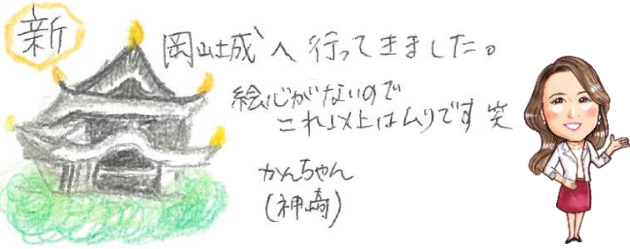 新
岡山城へ行ってきました。
絵心がないので
これ以上はムリです 笑
かんちゃん
(神崎)